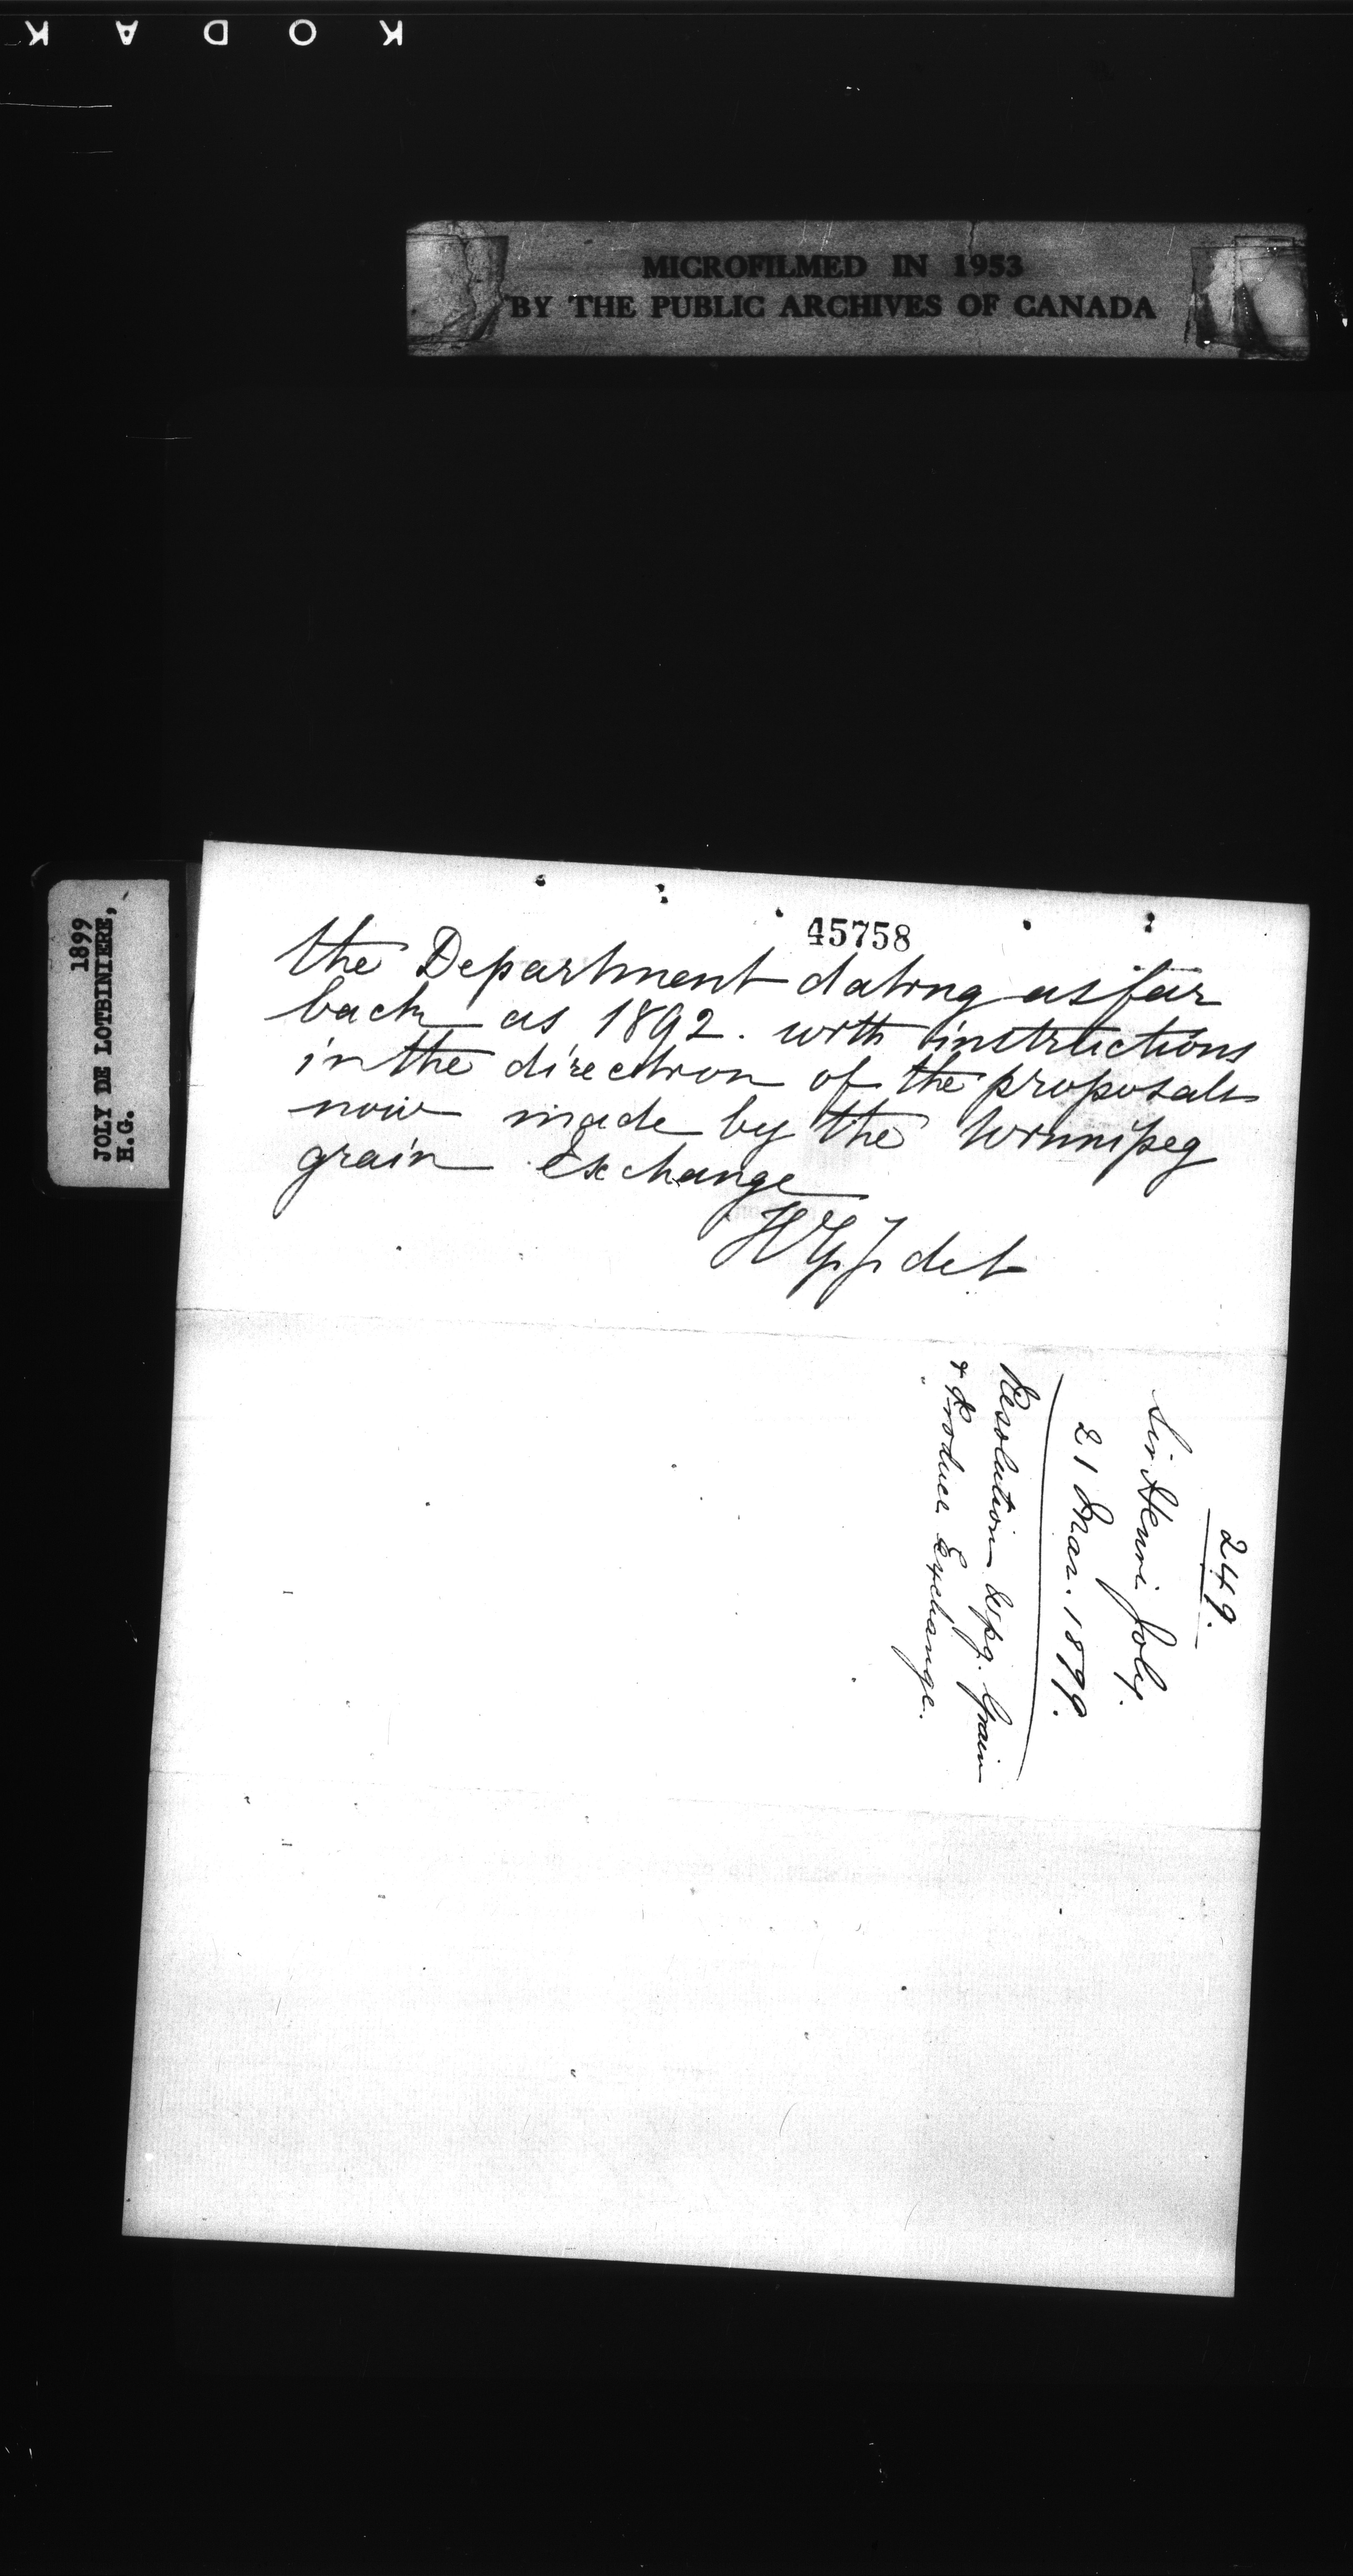 K O D A K
MICROFILMED IN 1953
BY THE PUBLIC ARCHIVES OF CANADA
1899
JOLY DE LOTBINIERE,
H.G.
45758
the Department dating as far
back as 1892. with instructions
in the direction of the proposals
now made by the Winnipeg
grain Exchange
HGJ deL
249.
Sir Henri Joly.
21 Mar. 1899.
Resolution Wpg. Grain
& Produce Exchange.